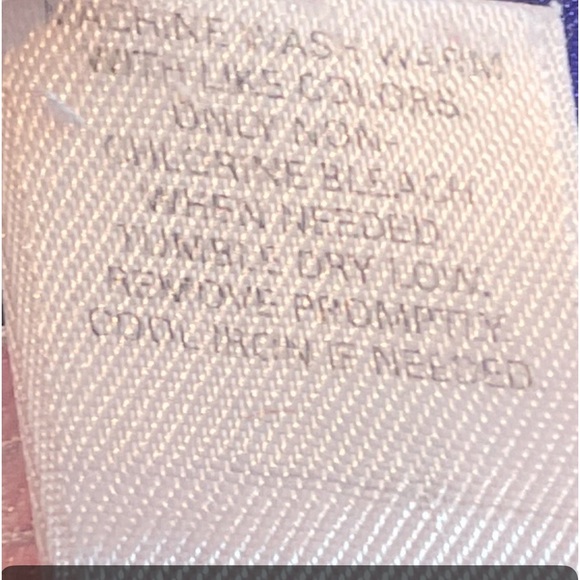 MACHINE WASH WARM
WITH LIKE COLORS.
ONLY NON-
CHLORINE BLEACH
WHEN NEEDED.
TUMBLE DRY LOW.
REMOVE PROMPTLY.
COOL IRON IF NEEDED